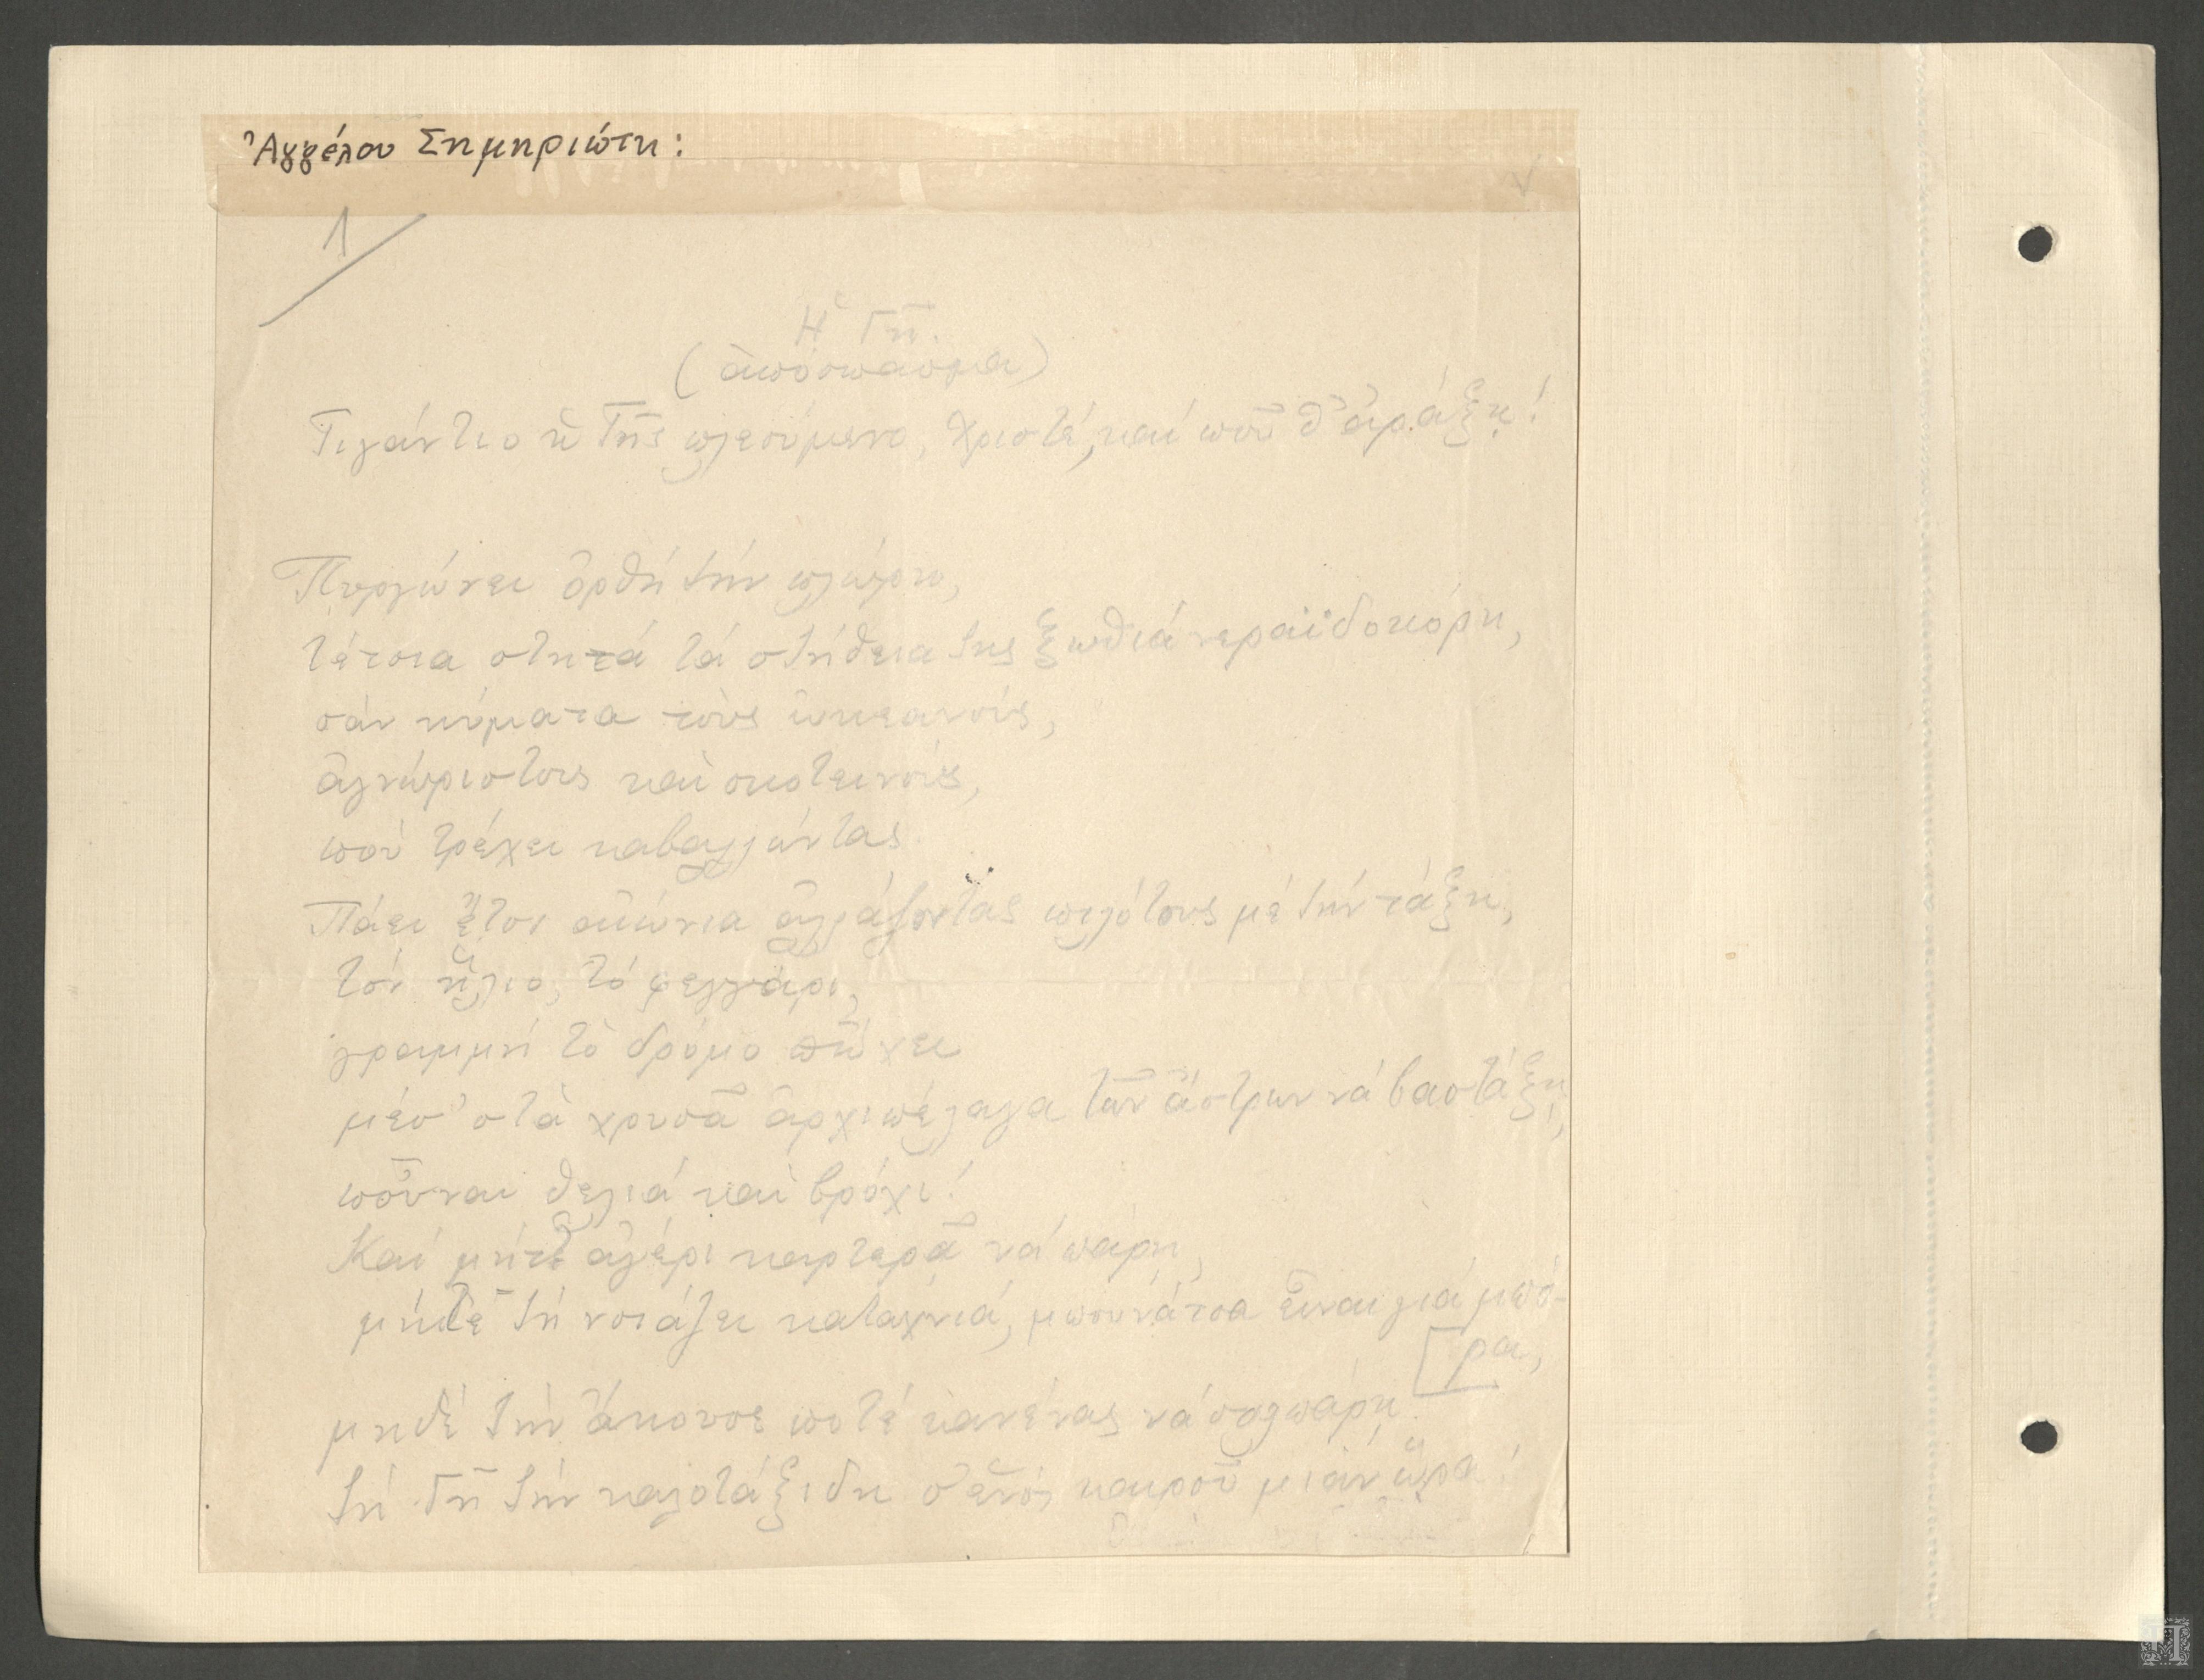 Ἀγγέλου Σημηριώτη:
1
Ἡ Γῆ.
(ἀπόσπασμα)
Γιγάντιο ἡ Γῆς πλεούμενο, Χριστέ, καί ποῦ θ' ἀράξῃ!
Πυργώνει ὀρθή τήν πλώρη,
τέτοια στητά τά στήθεια της ξωθιά νεραϊδοκόρη,
σάν κύματα τούς ὠκεανούς,
ἀγνώριστους καὶ σκοτεινούς,
πού τρέχει καβαλλώντας.
Πάει ἔτσι αἰώνια ἀλλάζοντας πιλότους μέ τήν τάξη,
τόν ἥλιο, τό φεγγάρι,
γραμμή τὸ δρόμο πὤχει
μέσ' στὰ χρυσᾶ ἀρχιπέλαγα τῶν ἄστρων νά βαστάξῃ,
ποὖναι θελιά καὶ βρόχι!
Καί μήτε ἀγέρι καρτερᾶ νά πάρῃ,
μήτε τή νοιάζει καταχνιά, μπουνάτσα εἶναι γιά μπό-
[ρα,
μηδέ τήν ἄκουσε ποτέ κανένας νά σαλπάρῃ
τή Γῆ τήν καλοτάξιδη σ' ἑνός καιροῦ μιάν ὥρα!